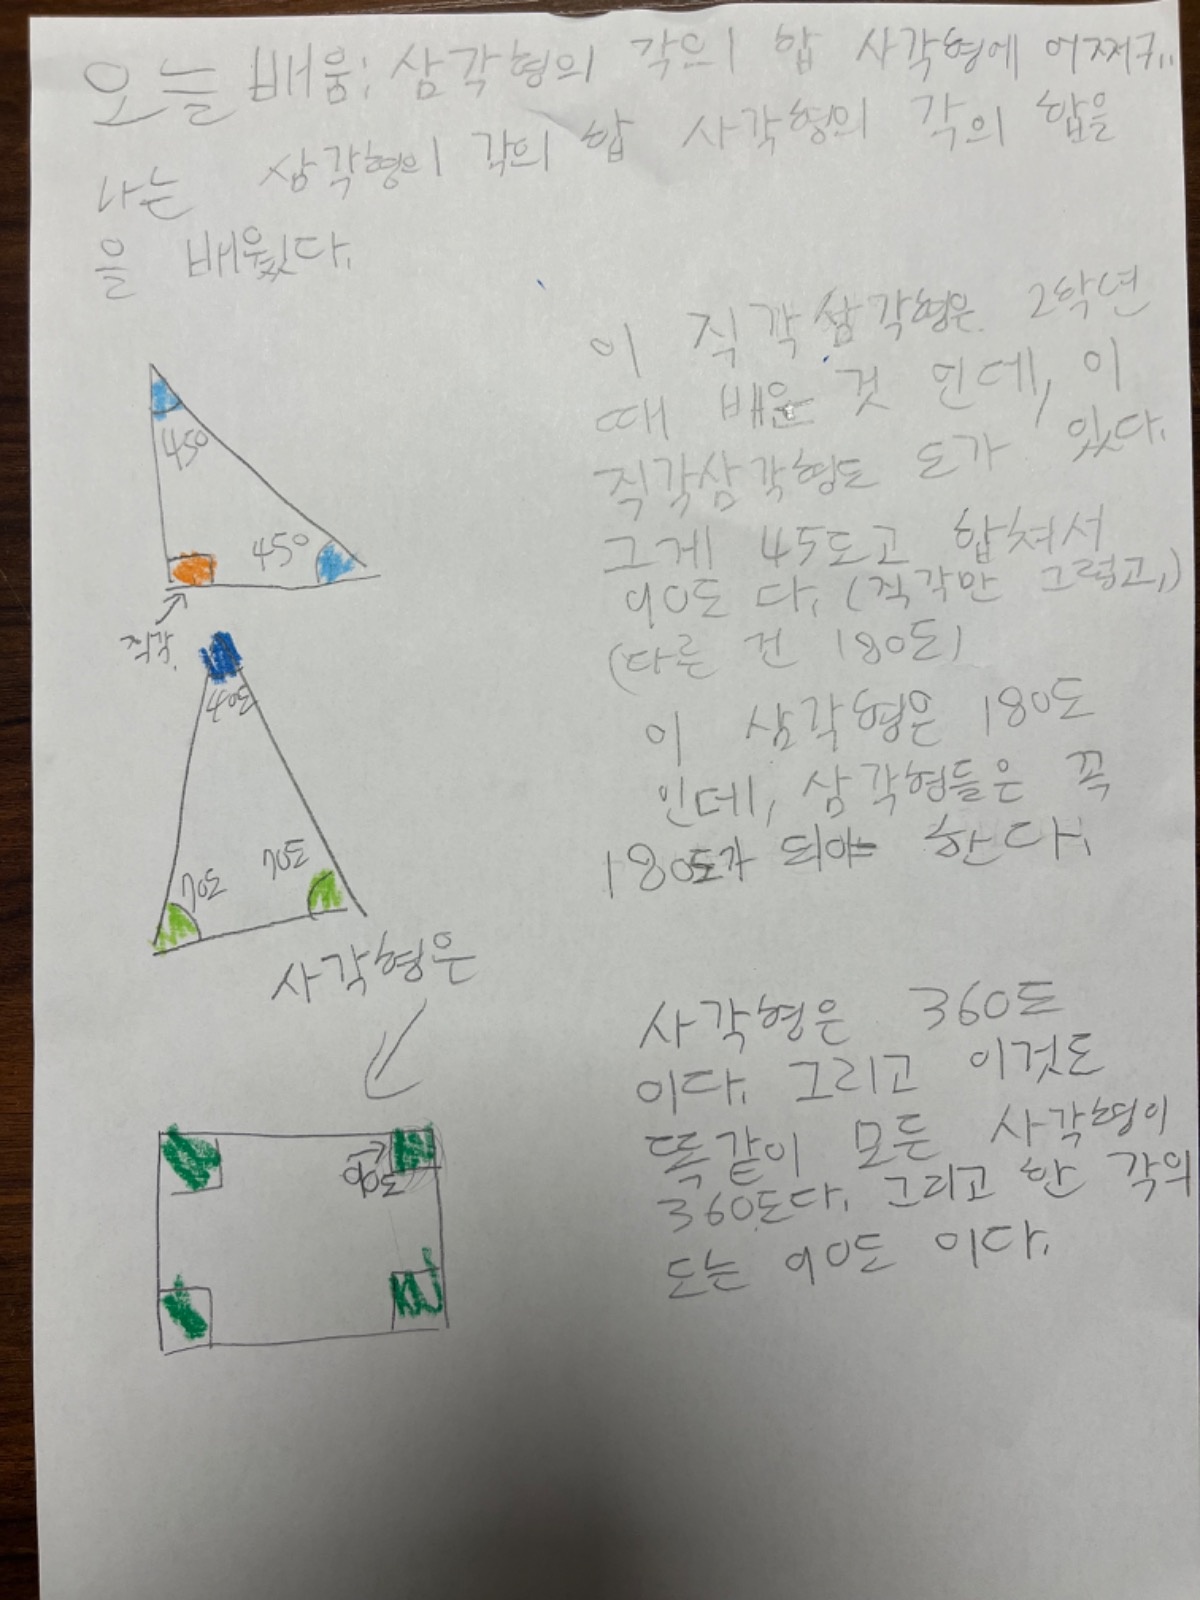 오늘 배움: 삼각형의 각의 합 사각형에 어쩌구..
나는 삼각형의 각의 합 사각형의 각의 합을
을 배웠다.
이 직각삼각형은 2학년
때 배운 것 인데, 이
직각삼각형도 도가 있다.
그게 45도고 합쳐서
90도 다. (직각만 그렇고,)
(다른 건 180도)
45°
45°
직각.
이 삼각형은 180도
인데, 삼각형들은 꼭
180도가 되야 한다.
40도
70도
70도
사각형은
사각형은 360도
이다. 그리고 이것도
똑같이 모든 사각형이
360도다. 그리고 한 각의
도는 90도 이다.
90도